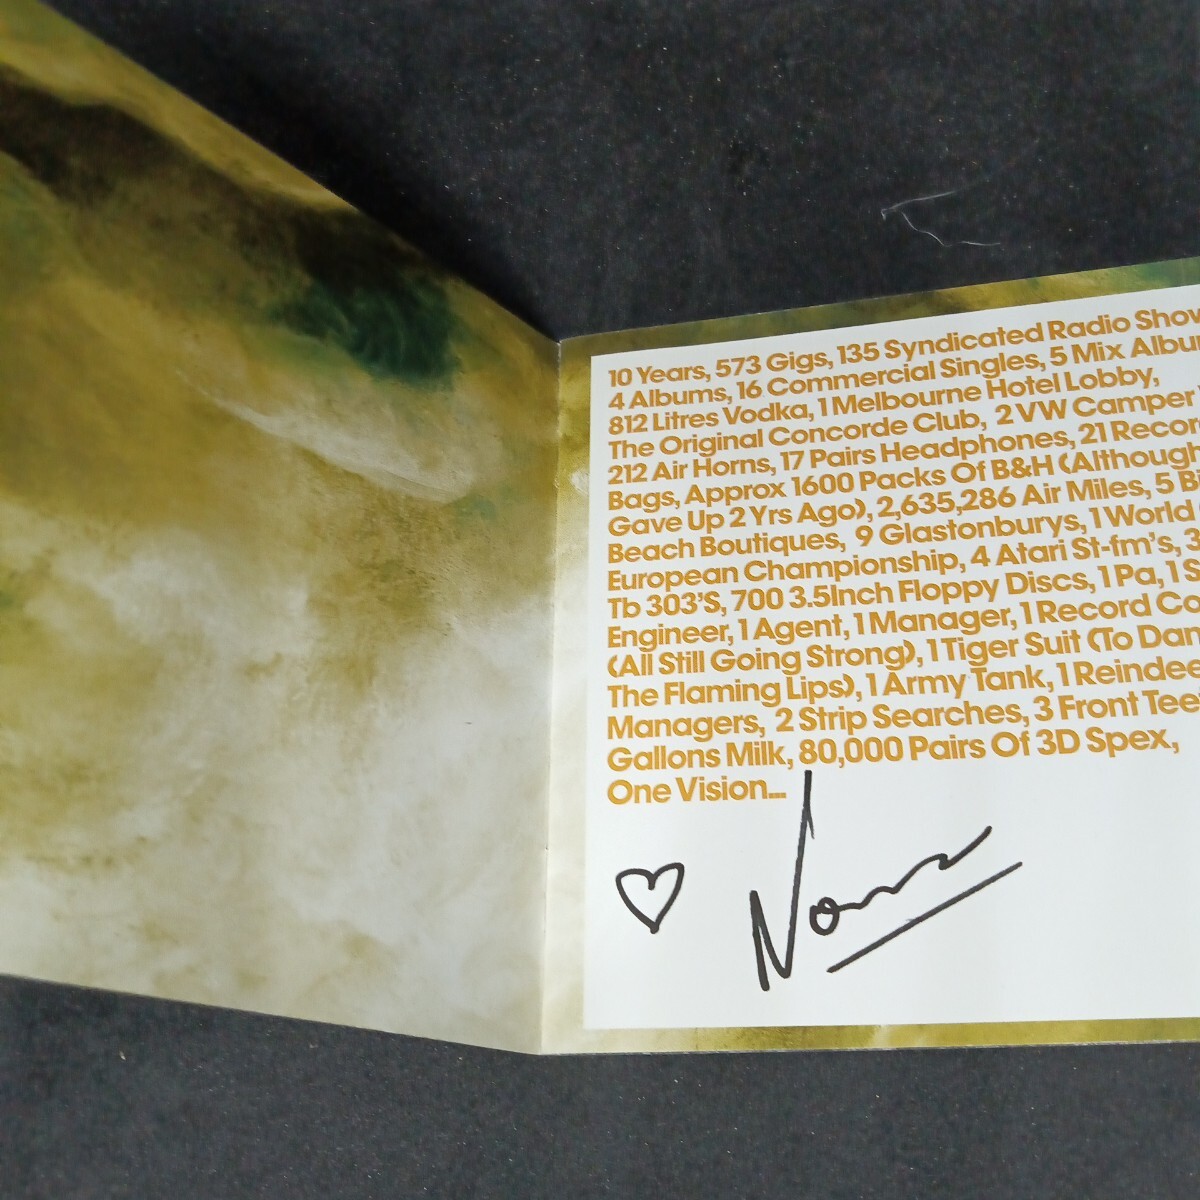 10 Years, 573 Gigs, 135 Syndicated Radio Show
4 Albums, 16 Commercial Singles, 5 Mix Album
812 Litres Vodka, 1 Melbourne Hotel Lobby,
The Original Concorde Club, 2 VW Camper
212 Air Horns, 17 Pairs Headphones, 21 Record
Bags, Approx 1600 Packs Of B&H (Although
Gave Up 2 Yrs Ago), 2,635,286 Air Miles, 5 B
Beach Boutiques, 9 Glastonburys, 1 World
European Championship, 4 Atari St-fm's, 3
Tb 303'S, 700 3.5Inch Floppy Discs, 1 Pa, 1 S
Engineer, 1 Agent, 1 Manager, 1 Record Co
(All Still Going Strong), 1 Tiger Suit (To Dan
The Flaming Lips), 1 Army Tank, 1 Reindee
Managers, 2 Strip Searches, 3 Front Tee
Gallons Milk, 80,000 Pairs Of 3D Spex,
One Vision...